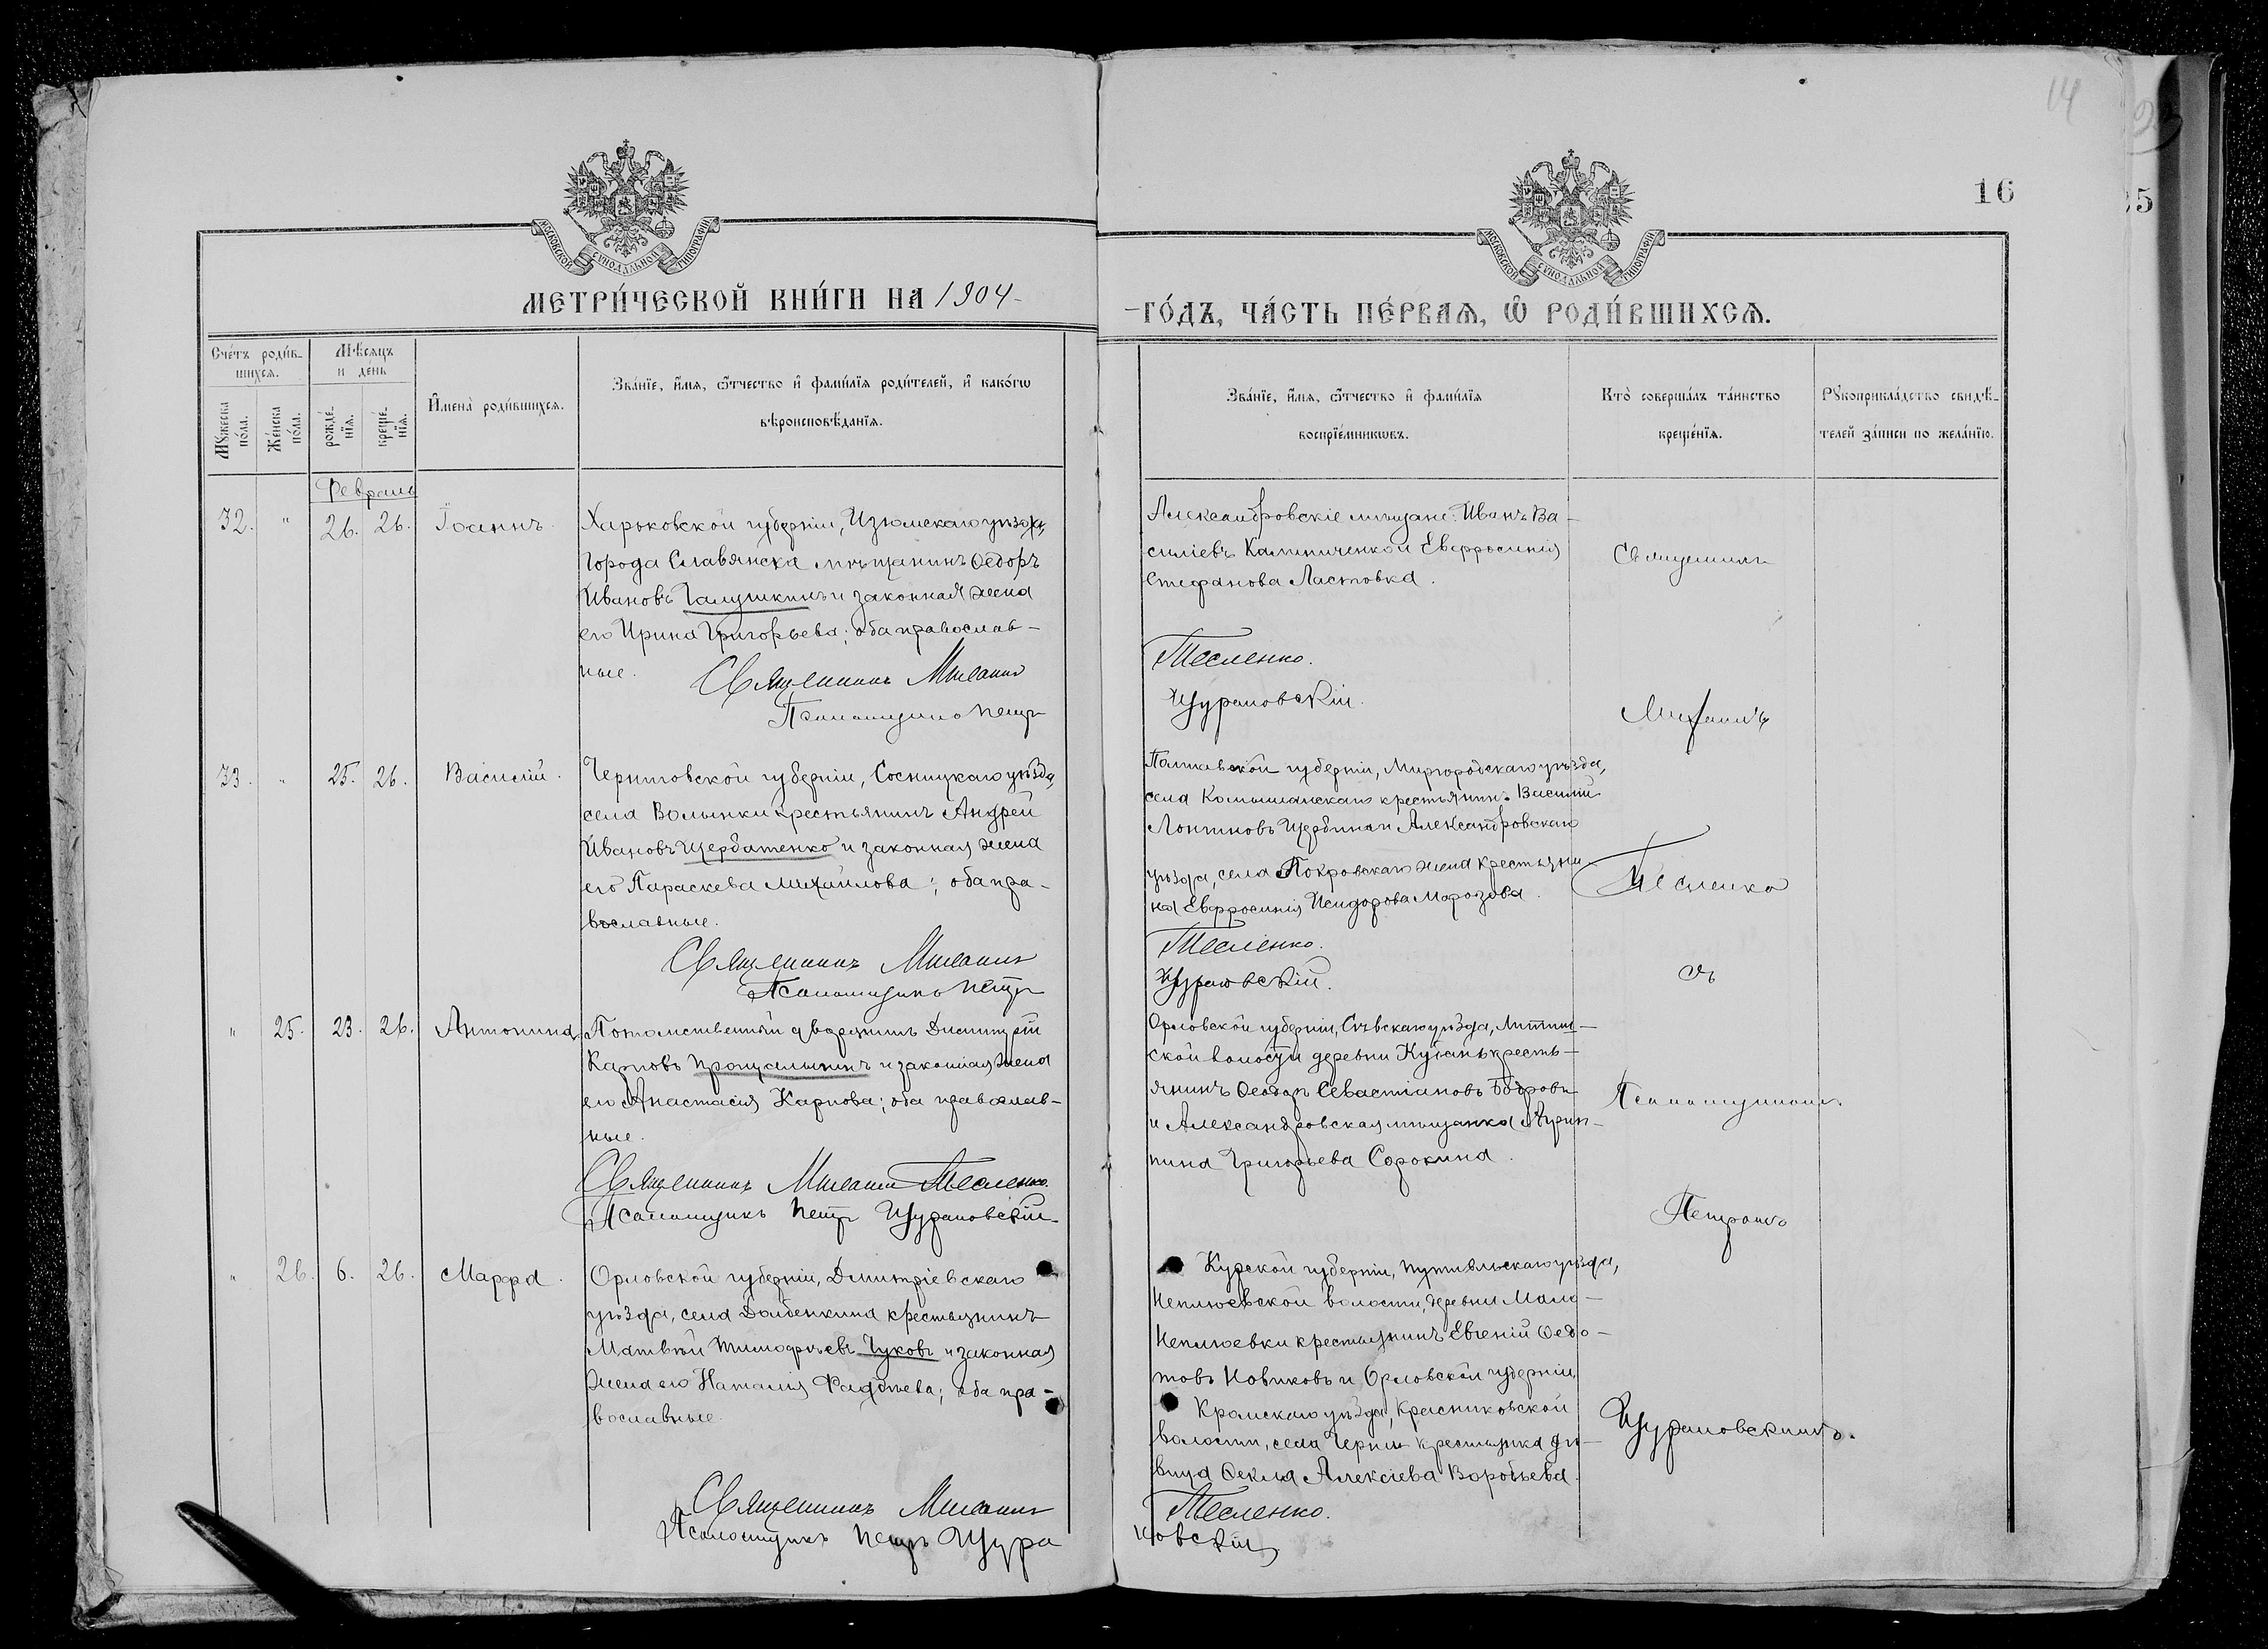 14
16
МОСКОВСКОЙ СѴНОДАЛЬНОЙ ТИПОГРАФІИ
МОСКОВСКОЙ СѴНОДАЛЬНОЙ ТИПОГРАФІИ
МЕТРИ́ЧЕСКОЙ КНИ́ГИ НА 1904-
-ГО́ДЪ, ЧА́СТЬ ПЕ́РВАѦ, Ѡ РОДИ́ВШИХСѦ.
Сче́тъ роди́в-
шихсѧ.
Мѣ́сяцъ
и де́нь
Мꙋ́жеска
по́ла.
Же́нска
по́ла.
рожде́-
нїѧ.
креще́-
нїѧ.
И҆мена̀ роди́вшихсѧ.
Зва́нїе, и҆́мѧ, ѻ҆́тчество и҆ фами́лїѧ роди́телей, и҆ како́гѡ
вѣроисповѣ́данїѧ.
Зва́нїе, и҆́мѧ, ѻ҆́тчество и҆ фами́лїѧ
воспрїе́мникѡвъ.
Кто̀ соверша́лъ та́инство
креще́нїѧ.
Рꙋкоприкла́дство свидѣ́-
телей за́писи по жела́нїю.
Февраль
32. " 26. 26. Іоаннъ.
Харьковской губерніи, Изюмскаго уѣзда,
города Славянска мѣщанинъ Ѳедоръ
Ивановъ Галушкинъ и законная жена
его Ирина Григорьева; оба православ-
ные.
Священникъ Михаилъ
Псаломщикъ Петръ
Александровскіе мѣщане: Иванъ Ва-
силіевъ Калиниченко и Евфросинія
Стефанова Ластовка.
Тесленко.
Щурановскій.
Священникъ
Михаилъ
33. " 25. 26. Василій.
Черниговской губерніи, Сосницкаго уѣзда,
села Волынки крестьянинъ Андрей
Ивановъ Щербатенко и законная жена
его Параскева Михаилова; оба пра-
вославные.
Священникъ Михаилъ
Псаломщикъ Петръ
Полтавской губерніи, Миргородскаго уѣзда,
села Комышанскаго крестьянинъ Василій
Лонгиновъ Щербина и Александровскаго
уѣзда, села Покровскаго жена крестьяни-
на Евфросинія Исидорова Морозова.
Тесленко.
Щурановскій.
Тесленко
съ
" 25. 23. 26. Антонина
Потомственный дворянинъ Димитрій
Карповъ и законная жена
его Анастасія Карпова; оба православ-
ные.
Священникъ Михаилъ Тесленко.
Псаломщикъ Петръ Щурановскій
Орловской губерніи, Сѣвскаго уѣзда,
ской волости деревни крестъ-
янинъ Ѳеодоръ Севастіановъ Бобровъ
и Александровская мѣщанка Агрип-
пина Григорьева Сорокина.
Псаломщикомъ
Петромъ
" 26. 6. 26. Марфа.
Орловской губерніи, Дмитріевскаго
уѣзда, села Долбенкина крестьянинъ
Матвѣй Тимофѣевъ Чуковъ и законная
жена его Наталія Фаддѣева; оба пра-
вославные.
Священникъ Михаилъ
Псаломщикъ Петръ Щура
Курской губерніи, Путивльскаго уѣзда,
Неплюевской волости, деревни Мало-
Неплюевки крестьянинъ Евгеній Ѳедо-
товъ Новиковъ и Орловской губерніи
Кромскаго уѣзда, Красниковской
волости, села крестьянка дѣ-
вица Ѳекла Алексіева Воробьева.
Тесленко.
новскій
Щурановскимъ.